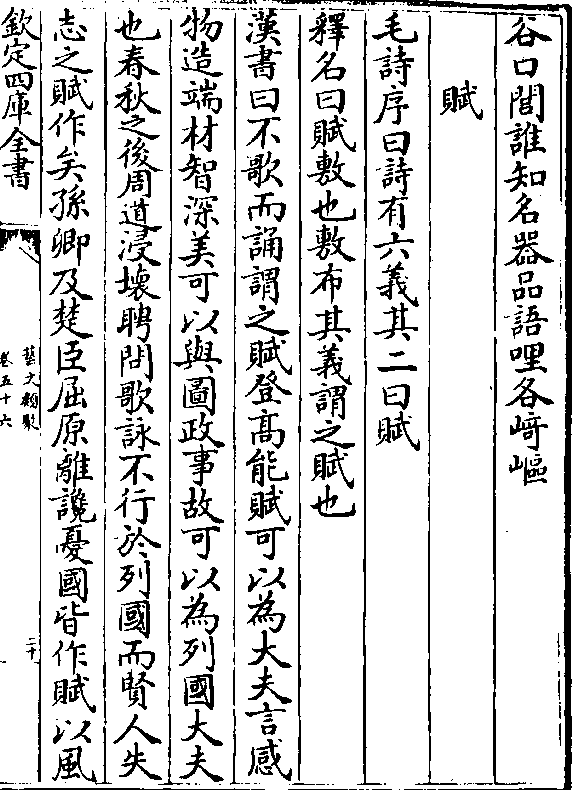 谷口閒誰知名器品語哩各﨑嶇
賦
毛詩序曰詩有六義其二曰賦
釋名曰賦敷也敷布其義謂之賦也
漢書曰不歌而誦謂之賦登髙能賦可以為大夫言感
物造端材智深美可以與圖政事故可以為列國大夫
也春秋之後周道浸壊聘問歌詠不行於列國而賢人失
志之賦作矣孫卿及楚臣屈原離讒憂國皆作賦以風
欽定四庫全書
藝文類聚
卷五十六
二十